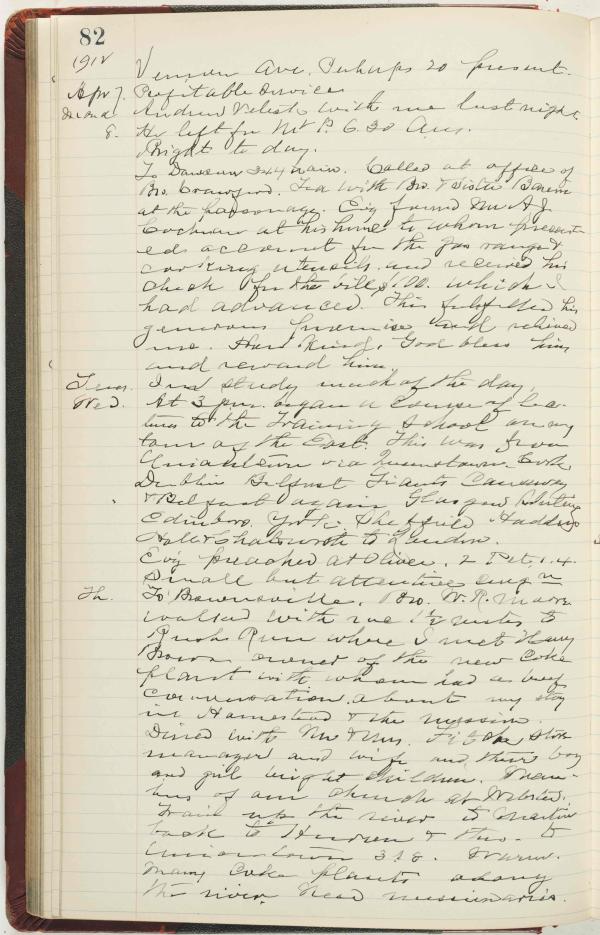 82
1912
Vernon Ave. Perhaps 20 present.
Apr 7. Profitable service
Andrew Velesk with me last night.
8. He left for Mt P. 6.30 a.m.
Bright to day.
To Dawson train. Called at office of
Bro. Crawford. Tea with Bro. & Sister
at the parsonage. Ev'g found Mr A.J.
Cochran at his home to whom present
ed account for the gas range &
cooking utensils and received his
check for the bill which I
had advanced. This fulfilled his
generous promise and relieved
me. How kind. God bless him
and reward him.
Tues. In study much of the day.
Wed. At 3 p.m. began a course of lec
tures to the Training School on my
tour of the East. This was from
Uniontown via Queenstown. Cork,
Dublin Belfast Giants Causeway
& Belfast again Glasgow Stirling
Edinboro. York. Sheffield Haddon
Hall & Chatsworth to London.
Ev'g preached at Oliver. 2 Pet. 1.4.
Small but attentive cong'n
Th. To Brownsville. Bro. W.R.
walked with me 1½ miles to
Rush Run where I met Harry
Brown owner of the new Coke
plant with whom had a brief
conversation about my stay
in Homestead & the mission.
Dined with Mr & Mrs. store
manager and wife and their boy
and girl bright children. Mem-
bers of our church at Webster.
Train up the river to Martin
back to & thro. to
Uniontown 3 & 8. Warm.
Many Coke plants along
the river. Need missionaries.